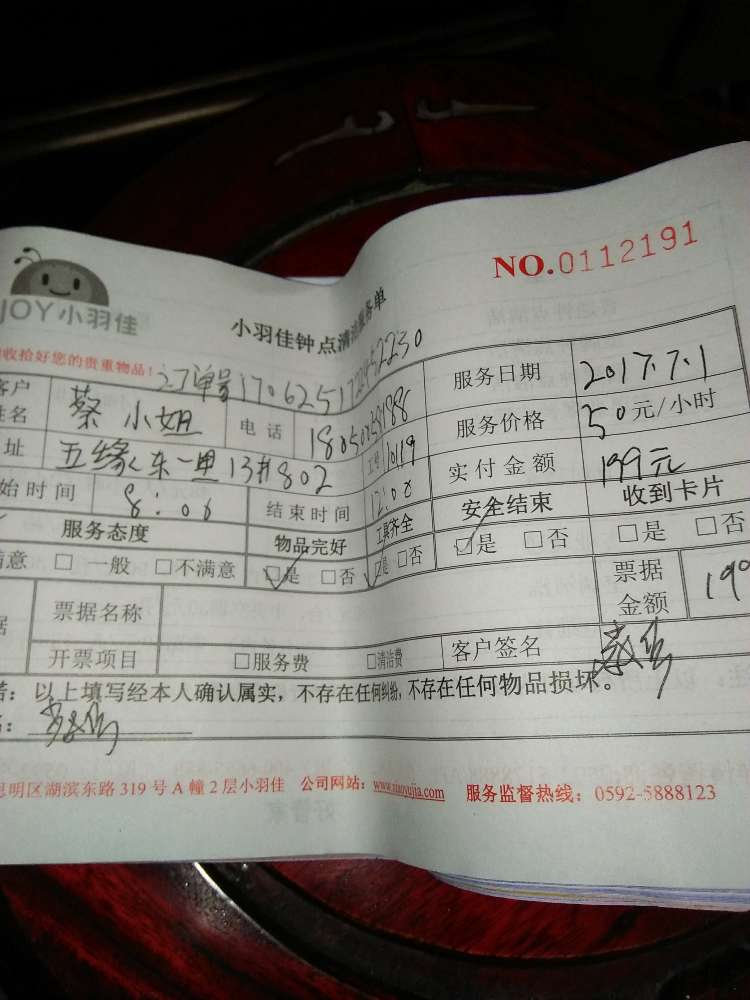 NO.0112191
JOY小羽佳
小羽佳钟点清洁服务单
收拾好您的贵重物品!
客户姓名 蔡小姐 电话 服务日期 2017.7.1
址 五缘东一里13#802 工号 1019 服务价格 50元/小时
始时间 8:00 结束时间 12:00 实付金额 199元
服务态度 物品完好 工具齐全 安全结束 收到卡片
满意 □ 一般 □不满意 □是 □否 □是 □否 □是 □否 □是 □否
据 票据名称 票据金额
开票项目 □服务费 □清洁费 客户签名
若:以上填写经本人确认属实,不存在任何纠纷,不存在任何物品损坏。
思明区湖滨东路 319 号 A 幢 2 层小羽佳 公司网站:www.xiaoyujia.com 服务监督热线:0592-5888123